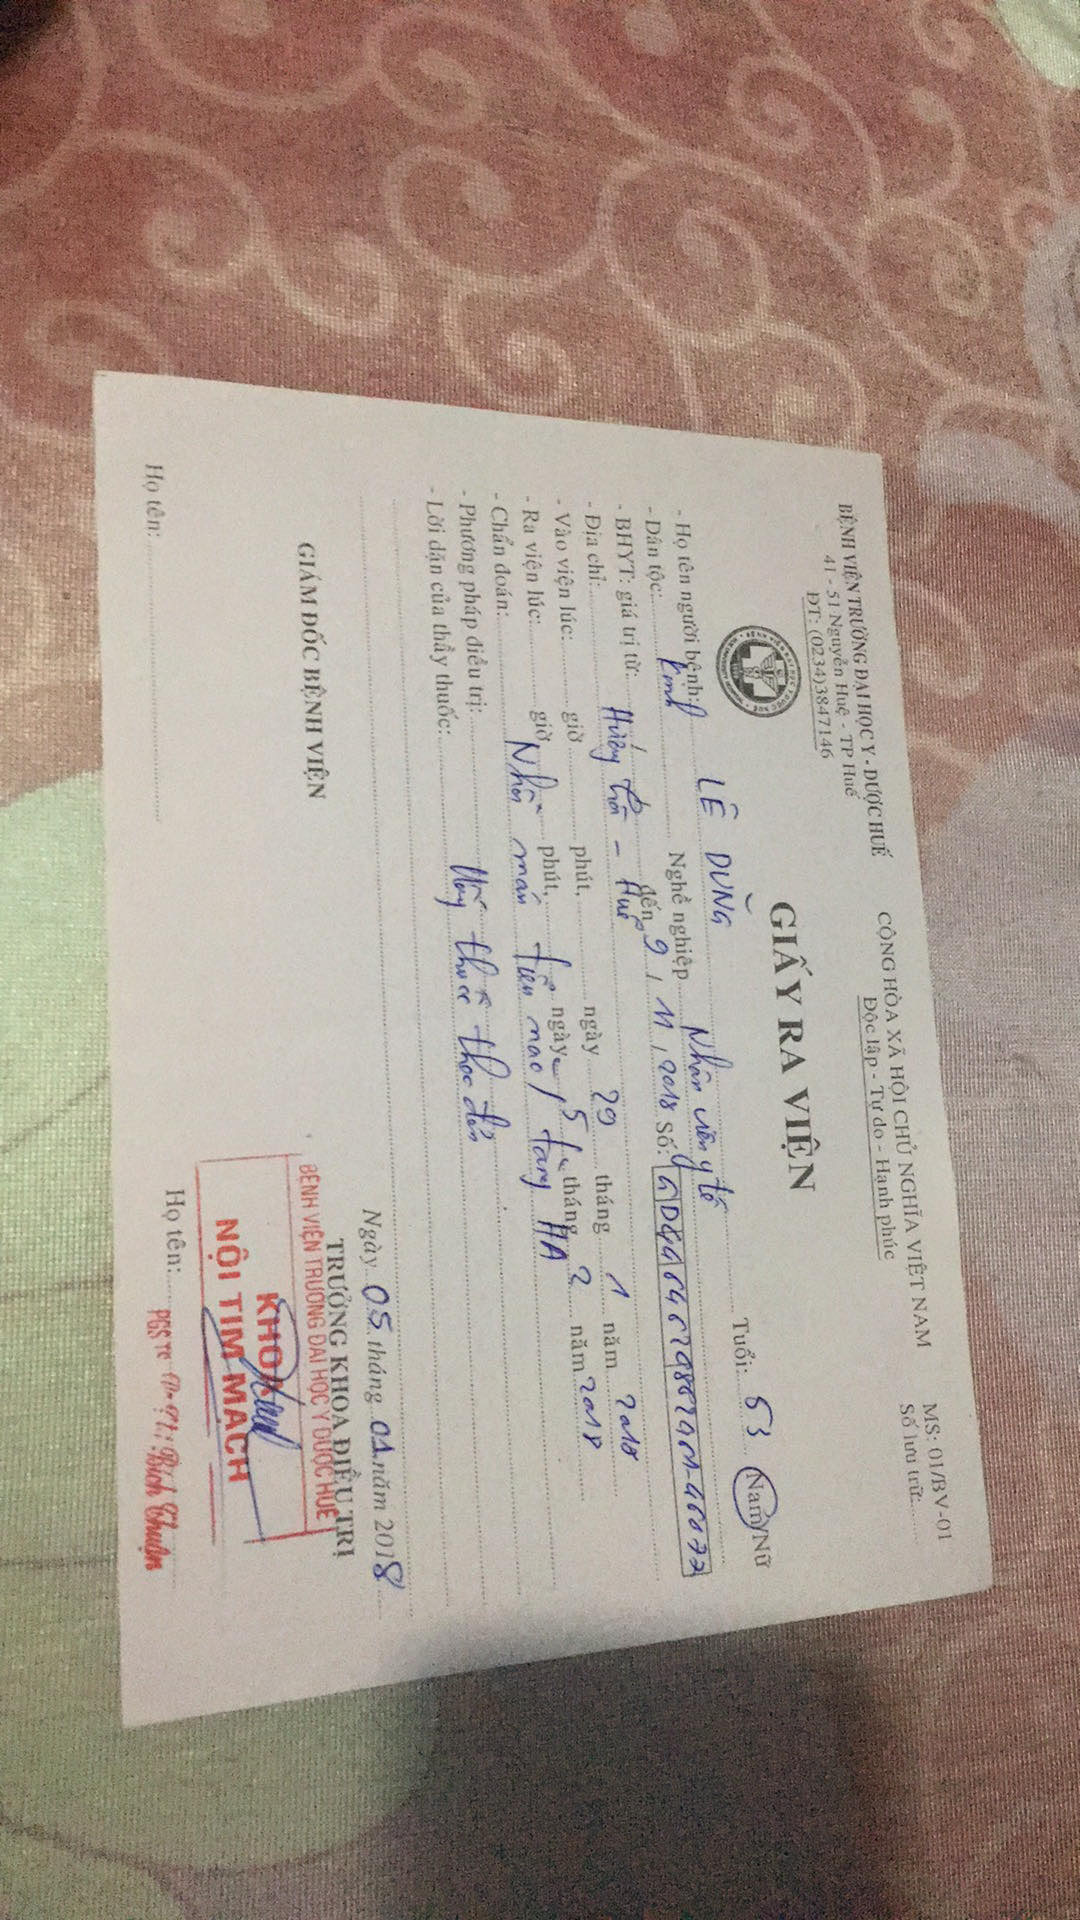 BỆNH VIỆN TRƯỜNG ĐẠI HỌC Y - DƯỢC HUẾ
41 - 51 Nguyễn Huệ - TP Huế
ĐT: (0234)3847146
CỘNG HÒA XÃ HỘI CHỦ NGHĨA VIỆT NAM
Độc lập - Tự do - Hạnh phúc
MS: 01/BV-01
Số lưu trữ:
GIẤY RA VIỆN
- Họ tên người bệnh: LÊ DŨNG Tuổi: 53 Nam/Nữ
- Dân tộc: Kinh Nghề nghiệp Nhân viên y tế
- BHYT: giá trị từ: đến 9, 11, 2018 Số:
- Địa chỉ: Hương Trà - Huế
- Vào viện lúc: giờ phút, ngày 29 tháng 1 năm 2018
- Ra viện lúc: giờ phút, ngày 5 tháng 2 năm 2018
- Chẩn đoán: Nhồi máu tiểu não / tăng HA
- Phương pháp điều trị:
- Lời dặn của thầy thuốc: Uống thuốc theo đơn
Ngày 05 tháng 01 năm 2018
GIÁM ĐỐC BỆNH VIỆN
TRƯỞNG KHOA ĐIỀU TRỊ
BỆNH VIỆN TRƯỜNG ĐẠI HỌC Y DƯỢC HUẾ
KHOA
NỘI TIM MẠCH
Họ tên:
Họ tên: PGS Bích Thuận